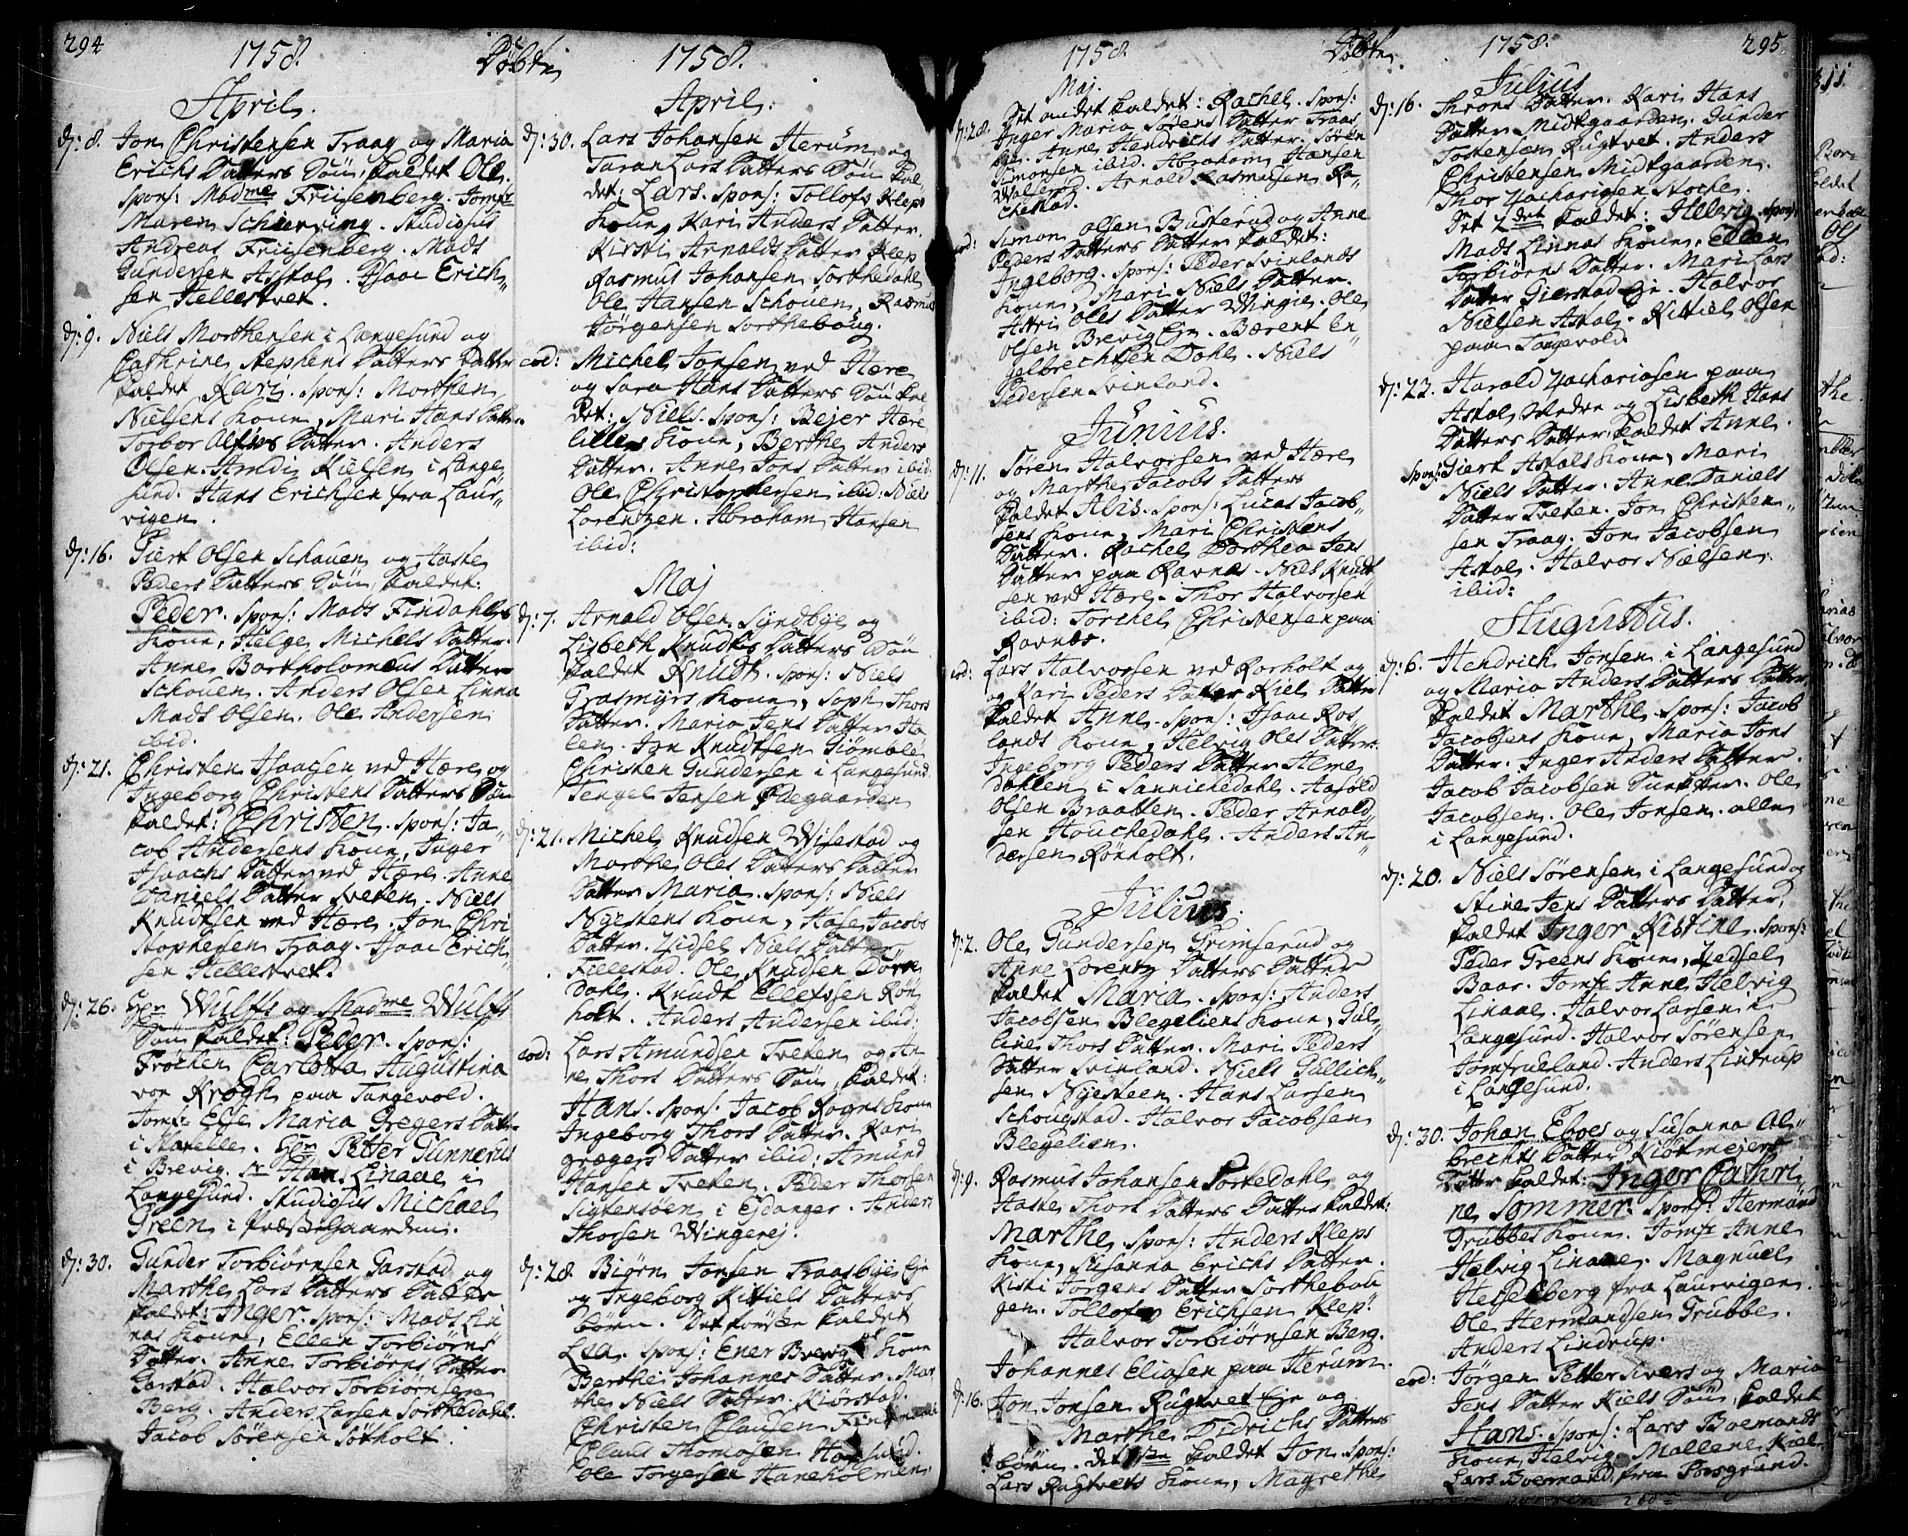 294
1758.
Döbte
April.
d: 8. Jon Christensen Traag og Maria
Erichs Datters Søn, kaldet Ole.
Spons: Madme Friisenberg. Jomfr
Maren Schierving. Studiosus
Andreas Friisenberg. Mads
Gundersen Aschal. Isaac Erich-
sen Hellestvet.
d: 9. Niels Morthensen i Langesund og
Cathrine Stephens Datters Datter
kaldet Kari. Spons: Morthen
Nielsens Kone, Mari Hans Datter.
Torbor Datter. Anders
Olsen. Amdi Kielsen i Lange-
sund. Hans Erichsen fra Laur-
vigen.
d: 16. Giert Olsen Schouen og Aaste
Peders Datters Søn, kaldet:
Peder. Spons: Mads Findahls
Kone, Helge Michels Datter.
Anne Bartholomeus Datter
Schouen. Anders Olsen Linna
Mads Olsen. Ole Andersen
ibid.
d: 21. Christen Isaacsen ved Høre og
Ingeborg Christens Datters Søn
kaldet: Christen. Spons: Ja-
cob Andersens Kone, Inger
Isaachs Datter ved Høre. Anne
Daniels Datter Tveten. Niels
Knudsen ved Høre. Jon Chri
stophersen Traag. Isaac Erich-
sen Hellestvet.
d: 26. Hr Wulffs og Madme Wulffs
Søn kaldet: Peder. Spons:
Frøchen Carlotta Augustina
von Krogh paa Tangevold.
Jomfr Else Maria Gregers Datter
i Stathelle. Hr Petter Gunnerus
i Brevig. Sr Hans Linaae i
Langesund. Studiosus Michael
Green i Præstegaarden.
d: 30. Gunder Torbiørnsen Garstad og
Marthe Lars Datters Datter
kaldet: Inger. Spons: Mads Lin
nas Kone, Ellen Torbiørns
Datter. Anne Torbiørns Datter
Garstad. Halvor Torbiørnsen
Berg. Anders Larsen Sorthedahl.
Jacob Sørensen Sotholt.
1758.
April.
d: 30. Lars Johansen Herum og
Taran Lars Datters Søn kal
det: Lars. Spons: Tollofs Kleps
Kone, Kari Anders Datter.
Kirsti Arnolds Datter Klep
Rasmus Johansen Sorthedahl
Ole Hansen Schouen, Rasmus
Jørgensen Sortheboug.
eod: Michel Jonsen ved Høre
og Sara Hans Datters Søn kal
det: Niels. Spons: Bejer Høre
lilles Kone, Berthe Anders
Datter. Anne Jons Datter ibid:
Ole Christophersen ibid: Niels
Lorentzen. Abraham Hansen
ibid:
Maj
d: 7. Arnold Olsen Syndbye og
Lisbeth Knudts Datters Søn
kaldet Knudt. Spons: Niels
Grasmyrs Kone, Soph Thors
Datter. Maria Jens Datter Ha
len. Jon Knudtsen Giømle
Christen Gundersen i Langesund
Tengel Jensen Ødegaarden
d: 21. Michel Knudsen Wisestad og
Marthe Oles Datters Datter
Datter Maria. Spons: Niels
Nyestens Kone, Aase Jacobs
Datter. Zidsel Niels Datter
Fillestad. Ole Knudsen Dørn
Dahl. Knudt Ellefssen Røn
holt. Anders Andersen ibid:
eod: Lars Amundsen Tveten og An-
ne Thors Datters Søn, kaldet:
Hans. Spons: Jacob Rogns Kone
Ingeborg Thors Datter. Kari
Gregers Datter ibid: Amund
Hansen Tveten. Peder Thorsen
Sigtesøen i Eidanger. Anders
Thorsen Wingerej.
d: 28. Biørn Jonsen Traasbye Eje
og Ingeborg Kittiels Datters
børn. Det første kaldet
Lisa. Spons: Ener Kone
Berthe Johannes Datter. Mar
the Niels Datter. Kiørstad.
Christen Clausen
Claus Thomasen
Ole Torgersen Haneholmen.
1758.
Döbte.
Maj.
d: 28. Det andet kaldet: Rachel. Spons:
Inger Maria Sørens Datter Traas
bye. Anne Hendrichs Datter. Søren
Simonsen ibid. Abraham Hansen
Arnold Rasmussen Ra-
chestad.
eod: Simon Olsen Busterud og Anne
Peders Datters Datter kaldet:
Ingeborg. Spons: Peder Svinlands
Kone, Mari Niels Datter.
Astri Oles Datter Wingie. Ole
Olsen Brevig Eje. Bærent En
gelbrechtsen Dahl. Niels
Pedersen Svinland.
Junius.
d: 11. Søren Halvorsen ved Høre
og Marthe Jacobs Datters
kaldet Alis. Spons: Lucas Jacob-
sens Kone, Mari Christens
Datter. Rachel Dorthea Jens
Datter paa Ravnes. Niels Knudt
sen ved Høre. Thor Halvorsen
ibid: Torchel Christensen paa
Ravnes.
eod: Lars Halvorsen ved Rorholt og
og Kari Peders Datter Kiel Datter
kaldet Anne. Spons: Isaac Ros-
lands Kone, Helvig Oles Datter.
Ingeborg Peders Datter Heme
Dahlen i Sannichedahl. Aasold
Olsen Braatten. Peder Arnold-
sen Houchedahl. Anders An-
dersen Rønholt.
Julius.
d: 2. Ole Gundersen Grimserud og
Anne Lorentz Datters Datter
kaldet Maria. Spons: Anders
Jacobsen Blegeliens Kone, Gul-
line Thors Datter. Mari Peders
Datter Svinland. Niels Gullich-
sen Nyesteen. Hans Larsen
Schougstad. Halvor Jacobsen
Blegelien.
d: 9. Rasmus Johansen Sortedahl og
Aaste Thors Datters Datter kaldet:
Marthe. Spons: Anders Kleps
Kone, Susanna Erichs Datter.
Kisti Jørgens Datter Sorthebou
gen. Tollof Erichsen Klep.
Halvor Torbiørnsen Berg.
Johannes Eliasen paa Herum.
d: 16. Jon Jonsen Rugtvet Eje og
Marthe Didrichs Datters
børn. Det 1ste kaldet Jon. Spons:
Lars Rugtvets Kone, Magrethe
1758.
295
Julius
d: 16. Sivers Datter. Kari Hans
Datter Midtgaarden. Gunder
Tostensen Rugtvet. Anders
Christensen Midtgaarden.
Thor Zachariasen Stoche.
Det 2det kaldet: Hellvig. Spons:
Mads Linnas Kone, Ellen
Torbiørns Datter. Mari Lars
Datter Gierstad Eje. Halvor
Nielsen Askal. Kittiel Olsen
paa Tangevold.
d: 23. Harold Zachariasen paa
Askal Nedre og Lisbeth Hans
Datters Datter, kaldet Anne.
Spons: Giert Askals Kone, Mari
Niels Datter. Anne Daniels
Datter Tveten. Jon Christen-
sen Traag. Jon Jacobsen
Askal. Halvor Nielsen.
ibid:
Augustus.
d: 6. Hendrich Jonsen i Langesund
og Maria Anders Datters Datter,
kaldet Marthe. Spons: Jacob
Jacobsens Kone, Maria Jons
Datter. Inger Anders Datter.
Jacob Jacobsen Ole
Jacobsen. Ole Jonsen. alle
i Langesund.
d: 20. Niels Sørensen i Langesund og
Stine Jens Datters Datter,
kaldet Inger Kistine. Spons:
Peder Greens Kone, Zidsel
Baar. Jomfr Anne Helvig
Linaae. Halvor Larsen i
Langesund. Halvor Sørensen
Jomfrueland. Anders Lintrup
i Langesund.
d: 30. Johan Eboes og Susanna Al-
brechts Datter Kiøtmejers
Datter kaldet: Inger Cathri
ne Sommer. Spons: Herman
Grubbes Kone. Jomfr Anne
Helvig Linaae. Magnus
Heselberg fra Laurvigen.
Ole Hermandsen Grubbe.
Anders Lindrup.
eod: Jørgen Petter Sivers og Maria
Jens Datter Kiels Søn, kaldet
Hans. Spons: Lars Boemands
Kone, Helvig Mallene Kiel
Lars Boemand fra Porsgrund.